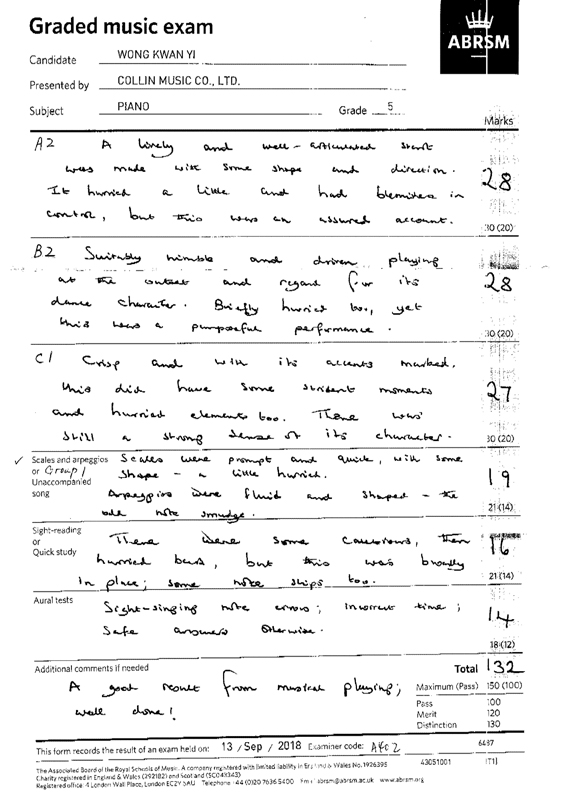 Graded music exam
ABRSM
Candidate WONG KWAN YI
Presented by COLLIN MUSIC CO., LTD.
Subject PIANO Grade 5
Marks
A2 A lively and well-articulated start
was made with some shape and direction.
It hurried a little and had blemishes in
control, but this was an assured account.
28
30 (20)
B2 Suitably nimble and driven playing
at the outset and regard for its
dance character. Briefly hurried too, yet
this was a purposeful performance.
28
30 (20)
C1 Crisp and with its accents marked,
this did have some strident moments
and hurried elements too. There was
still a strong sense of its character.
27
30 (20)
✓ Scales and arpeggios
or Group 1
Unaccompanied
song
Scales were prompt and quick, with some
shape - a little hurried.
Arpeggios were fluid and shaped - the
odd note smudge.
19
21 (14)
Sight-reading
or
Quick study
There were some cautious, then
hurried bars, but this was broadly
in place; some note slips too.
16
21 (14)
Aural tests
Sight-singing note errors; incorrect time;
Safe answers otherwise.
14
18 (12)
Additional comments if needed
A good result from musical playing;
well done!
Total 132
Maximum (Pass) 150 (100)
Pass 100
Merit 120
Distinction 130
This form records the result of an exam held on: 13 / Sep / 2018 Examiner code: A402
6487
43051001 [T1]
The Associated Board of the Royal Schools of Music. A company registered with limited liability in England & Wales No.1926395
Charity registered in England & Wales (292182) and Scotland (SC043343)
Registered office: 4 London Wall Place, London EC2Y 5AU Telephone +44 (0)20 7636 5400 Email abrsm@abrsm.ac.uk www.abrsm.org